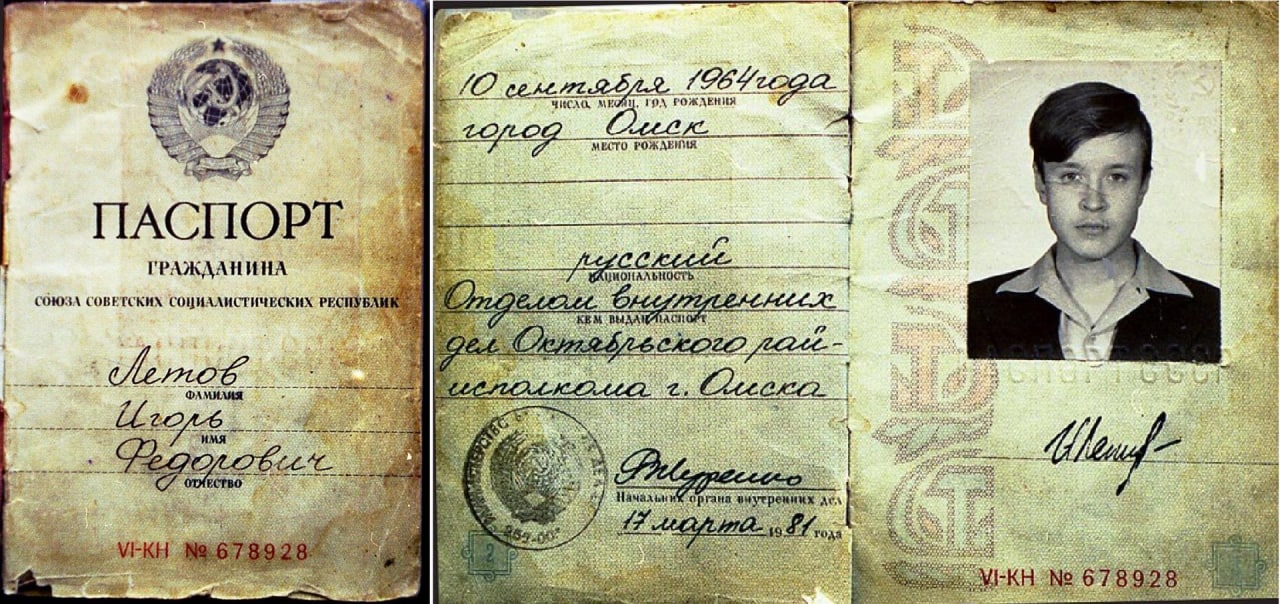 ПАСПОРТ
ГРАЖДАНИНА
СОЮЗА СОВЕТСКИХ СОЦИАЛИСТИЧЕСКИХ РЕСПУБЛИК
Летов
ФАМИЛИЯ
Игорь
ИМЯ
Федорович
ОТЧЕСТВО
VI-КН № 678928
10 сентября 1964 года
ЧИСЛО, МЕСЯЦ, ГОД РОЖДЕНИЯ
город Омск
МЕСТО РОЖДЕНИЯ
русский
НАЦИОНАЛЬНОСТЬ
Отделом внутренних
КЕМ ВЫДАН ПАСПОРТ
дел Октябрьского рай-
исполкома г. Омска
Начальник органа внутренних дел
17 марта 1981 года
2
VI-КН № 678928